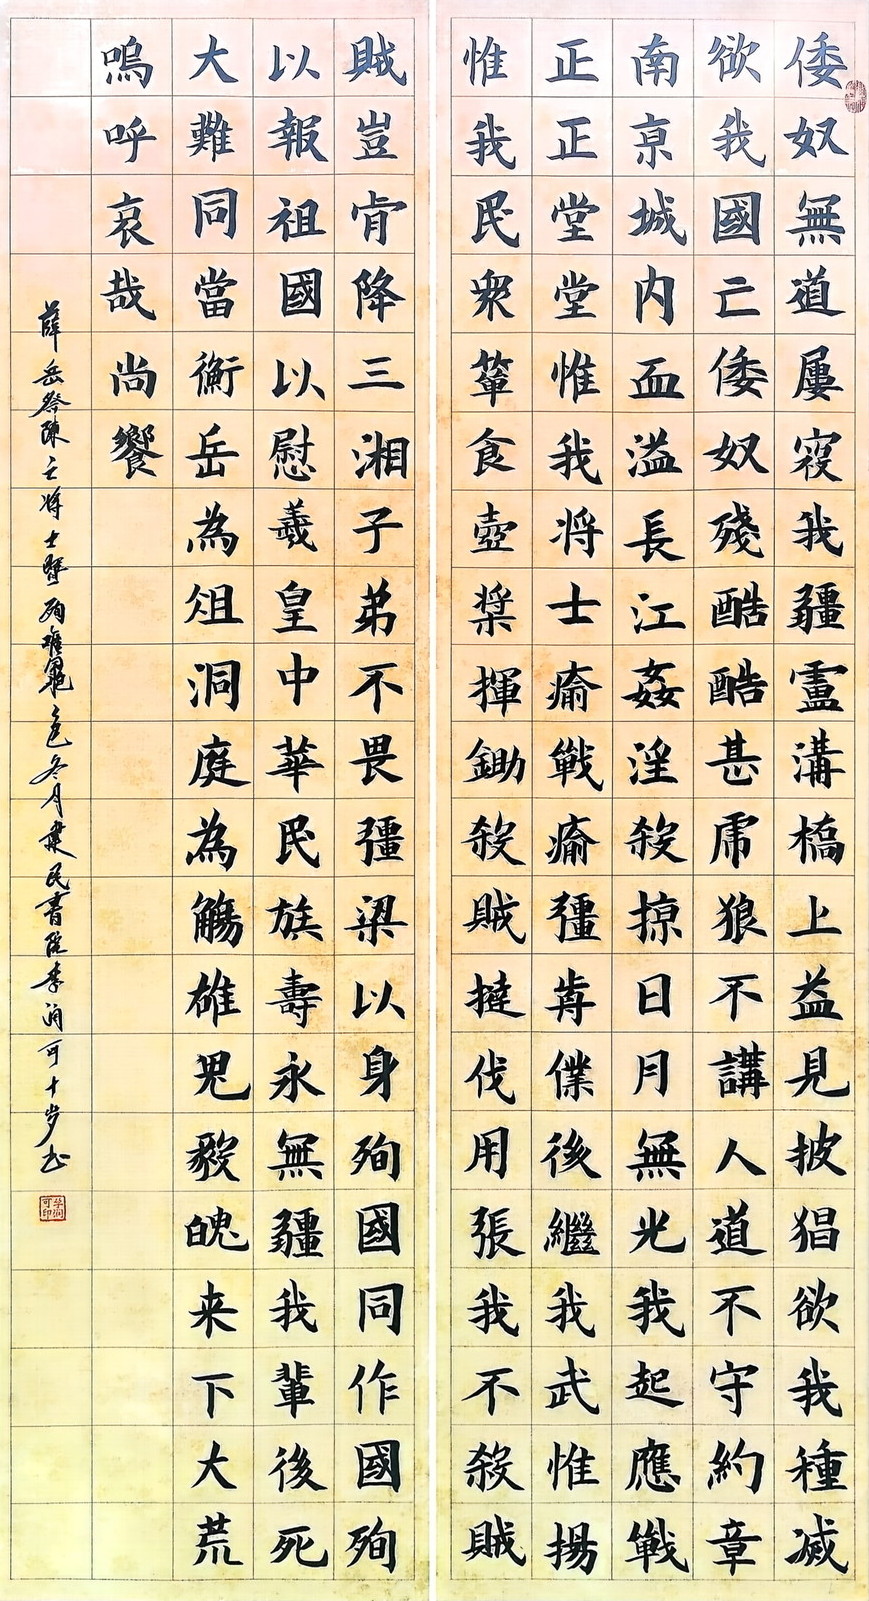 倭奴無道屢寇我疆盧溝橋上益見披猖欲我種滅
欲我國亡倭奴殘酷酷甚虎狼不講人道不守約章
南京城內血溢長江姦淫殺掠日月無光我起應戰
正正堂堂惟我將士瘉戰瘉彊前僕後繼我武惟揚
惟我民眾簞食壺槳揮鋤殺賊撻伐用張我不殺賊
賊豈肯降三湘子弟不畏彊梁以身殉國同作國殉
以報祖國以慰羲皇中華民族壽永無疆我輩後死
大難同當衡岳為俎洞庭為觴雄鬼毅魄来下大荒
嗚呼哀哉尚饗
薛岳祭陣亡將士暨殉難冬月肇民書院李润可十岁书